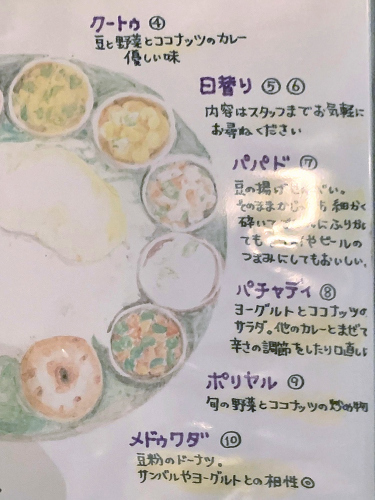 クートゥ ④
豆と野菜とココナッツのカレー
優しい味
日替り ⑤ ⑥
内容はスタッフまでお気軽に
お尋ねください
パパド ⑦
豆の揚げせんべい。
そのままか 細かく
砕いて にふりかけ
ても やビールの
つまみにしてもおいしい。
パチャディ ⑧
ヨーグルトとココナッツの
サラダ。他のカレーとまぜて
辛さの調節をしたり口直し
ポリヤル ⑨
旬の野菜とココナッツの炒め物
メドゥワダ ⑩
豆粉のドーナツ。
サンバルやヨーグルトとの相性◎